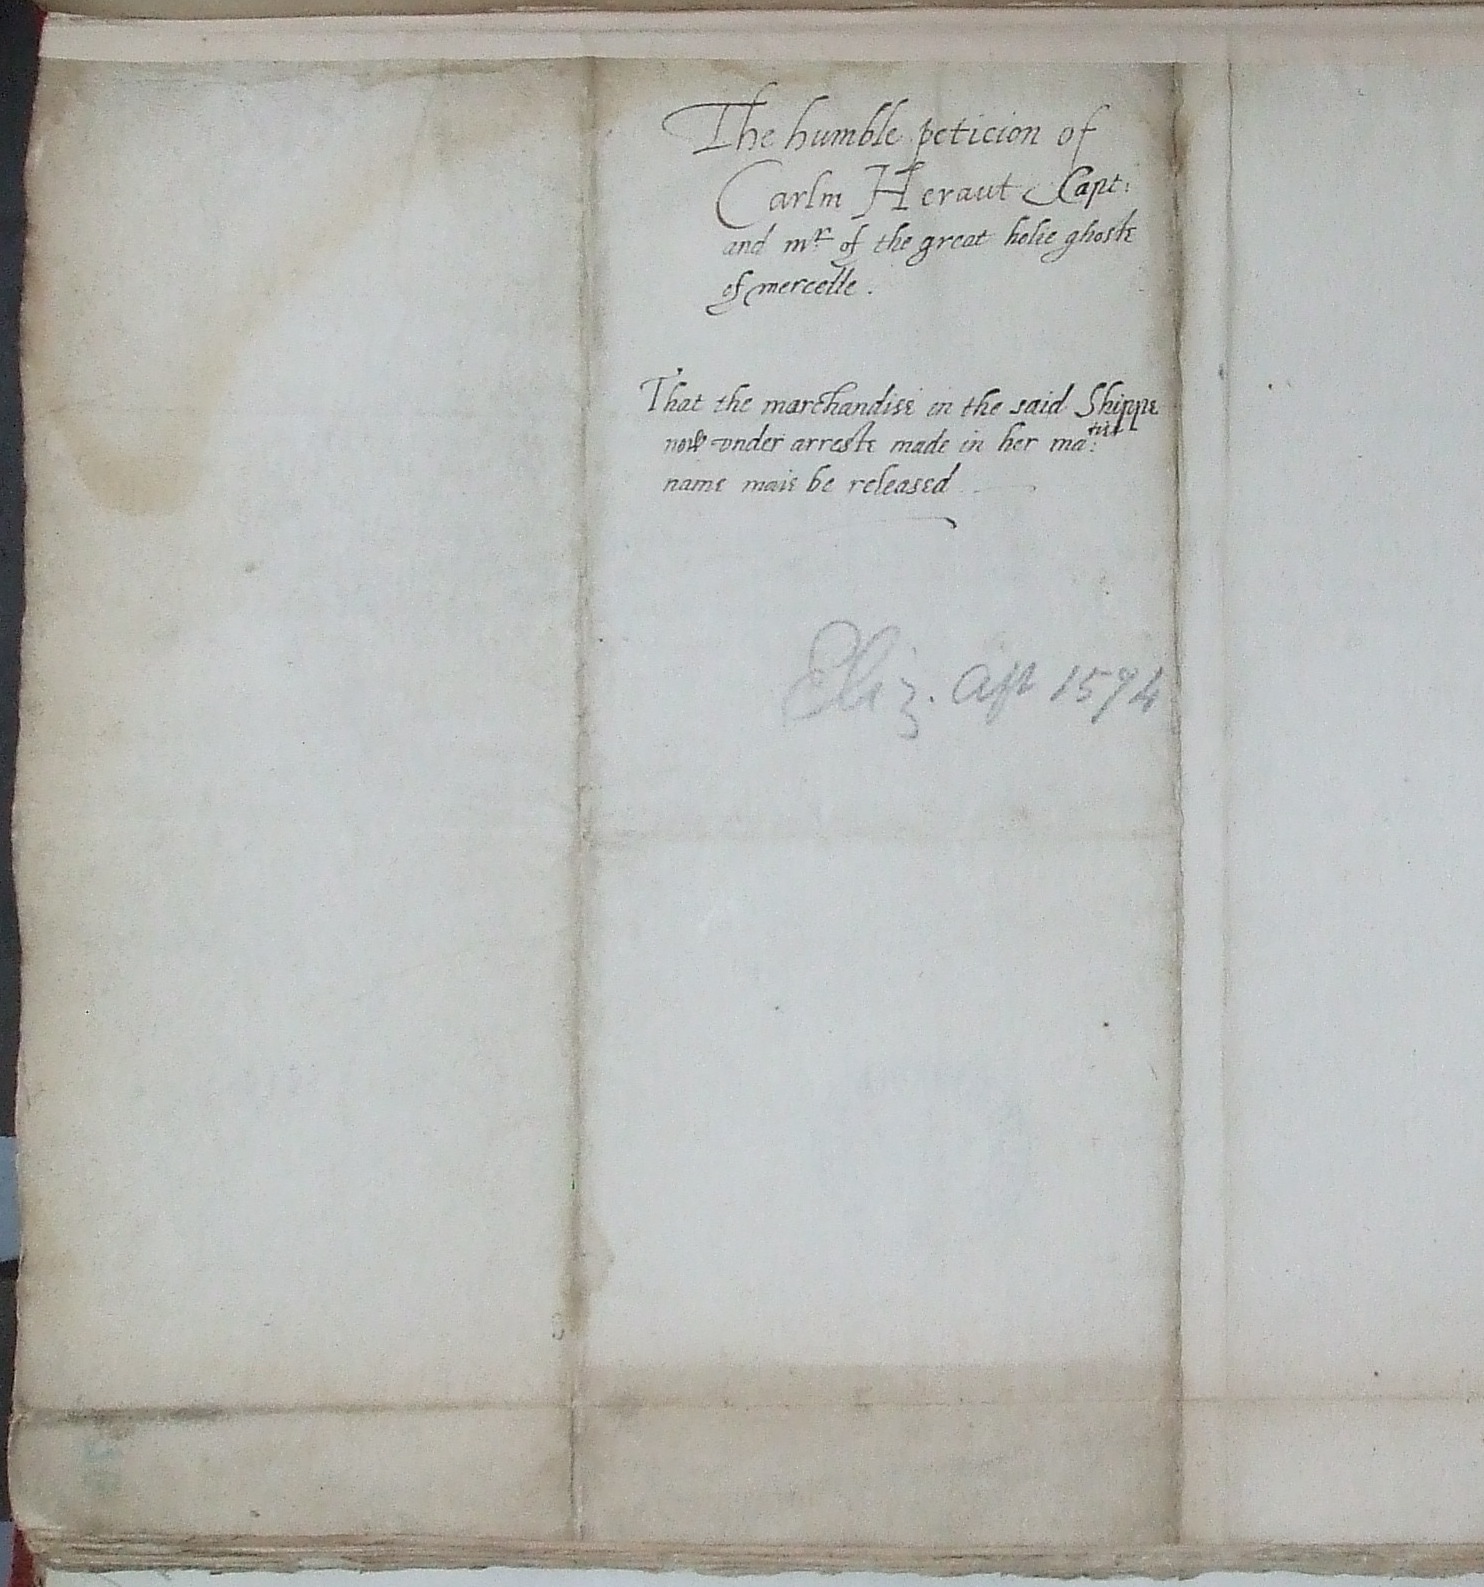 The humble peticion of
Carlm Heraut Capt:
and mr of the great holie ghoste
of mercelle.
That the marchandise in the said Shippe
now vnder arreste made in her ma:ties
name maie be released
Eliz. Apr 1594